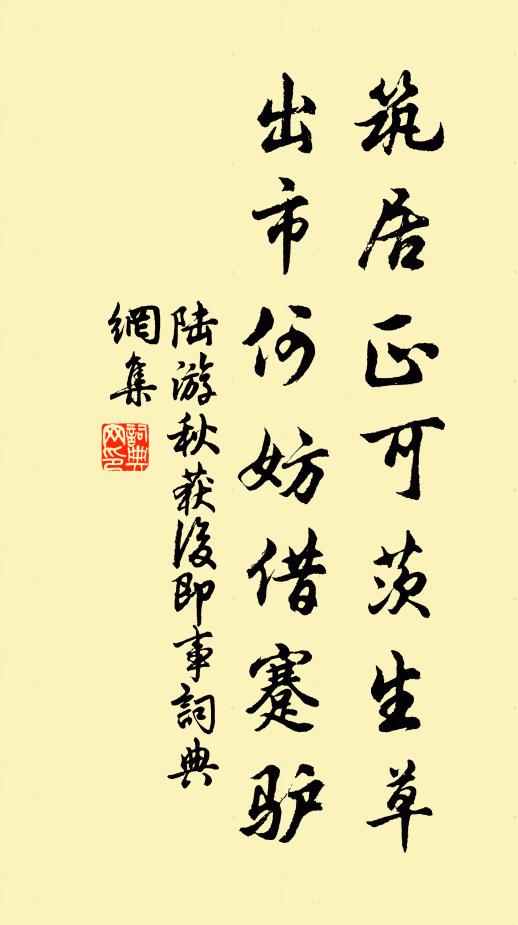 筑居正可茨生草
出市何妨借蹇驴
陆游秋获後即事詞典
網集
詞典
网印